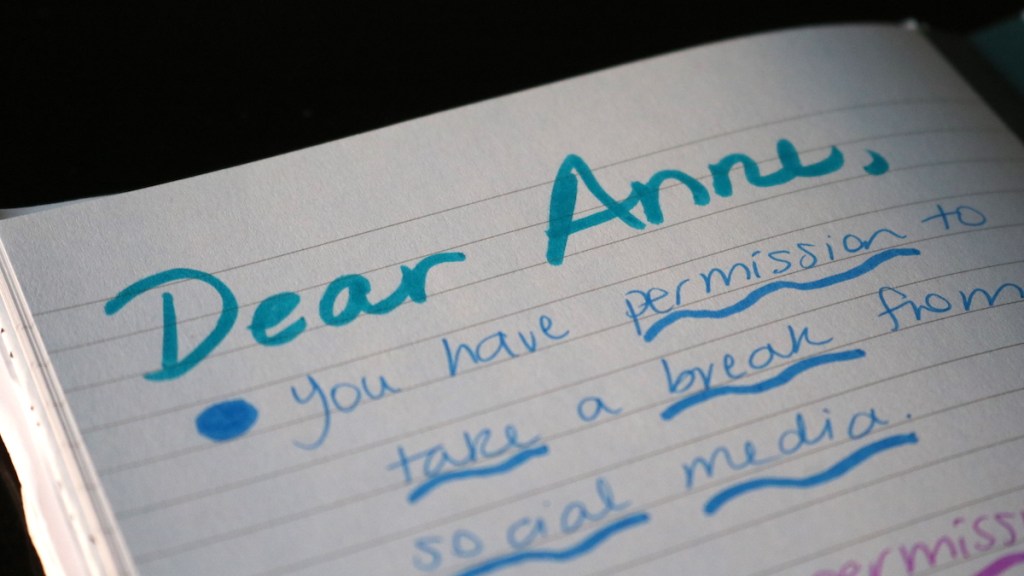 Dear Anne,
• you have permission to
take a break from
social media.